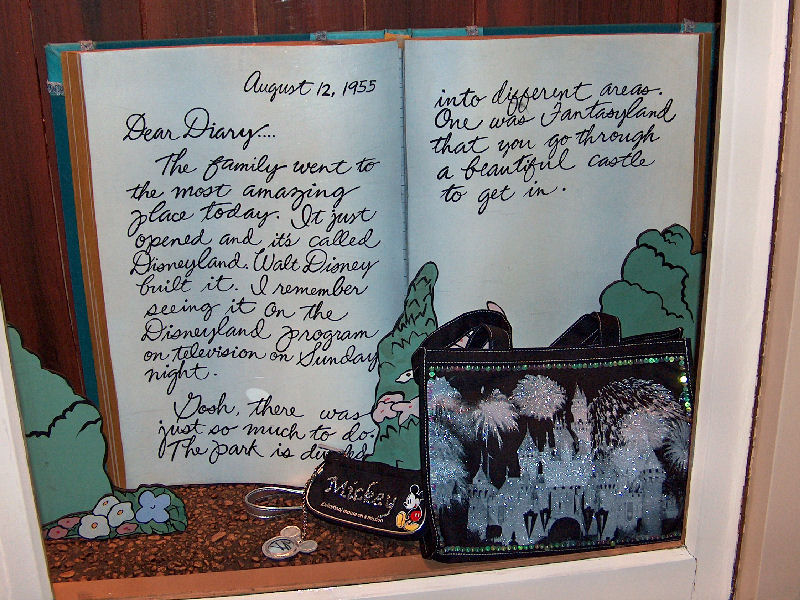 August 12, 1955
Dear Diary....
The family went to
the most amazing
place today. It just
opened and it's called
Disneyland. Walt Disney
built it. I remember
seeing it on the
Disneyland program
on television on Sunday
night.
Gosh, there was
just so much to do.
The park is divided
into different areas.
One was Fantasyland
that you go through
a beautiful castle
to get in.
Mickey